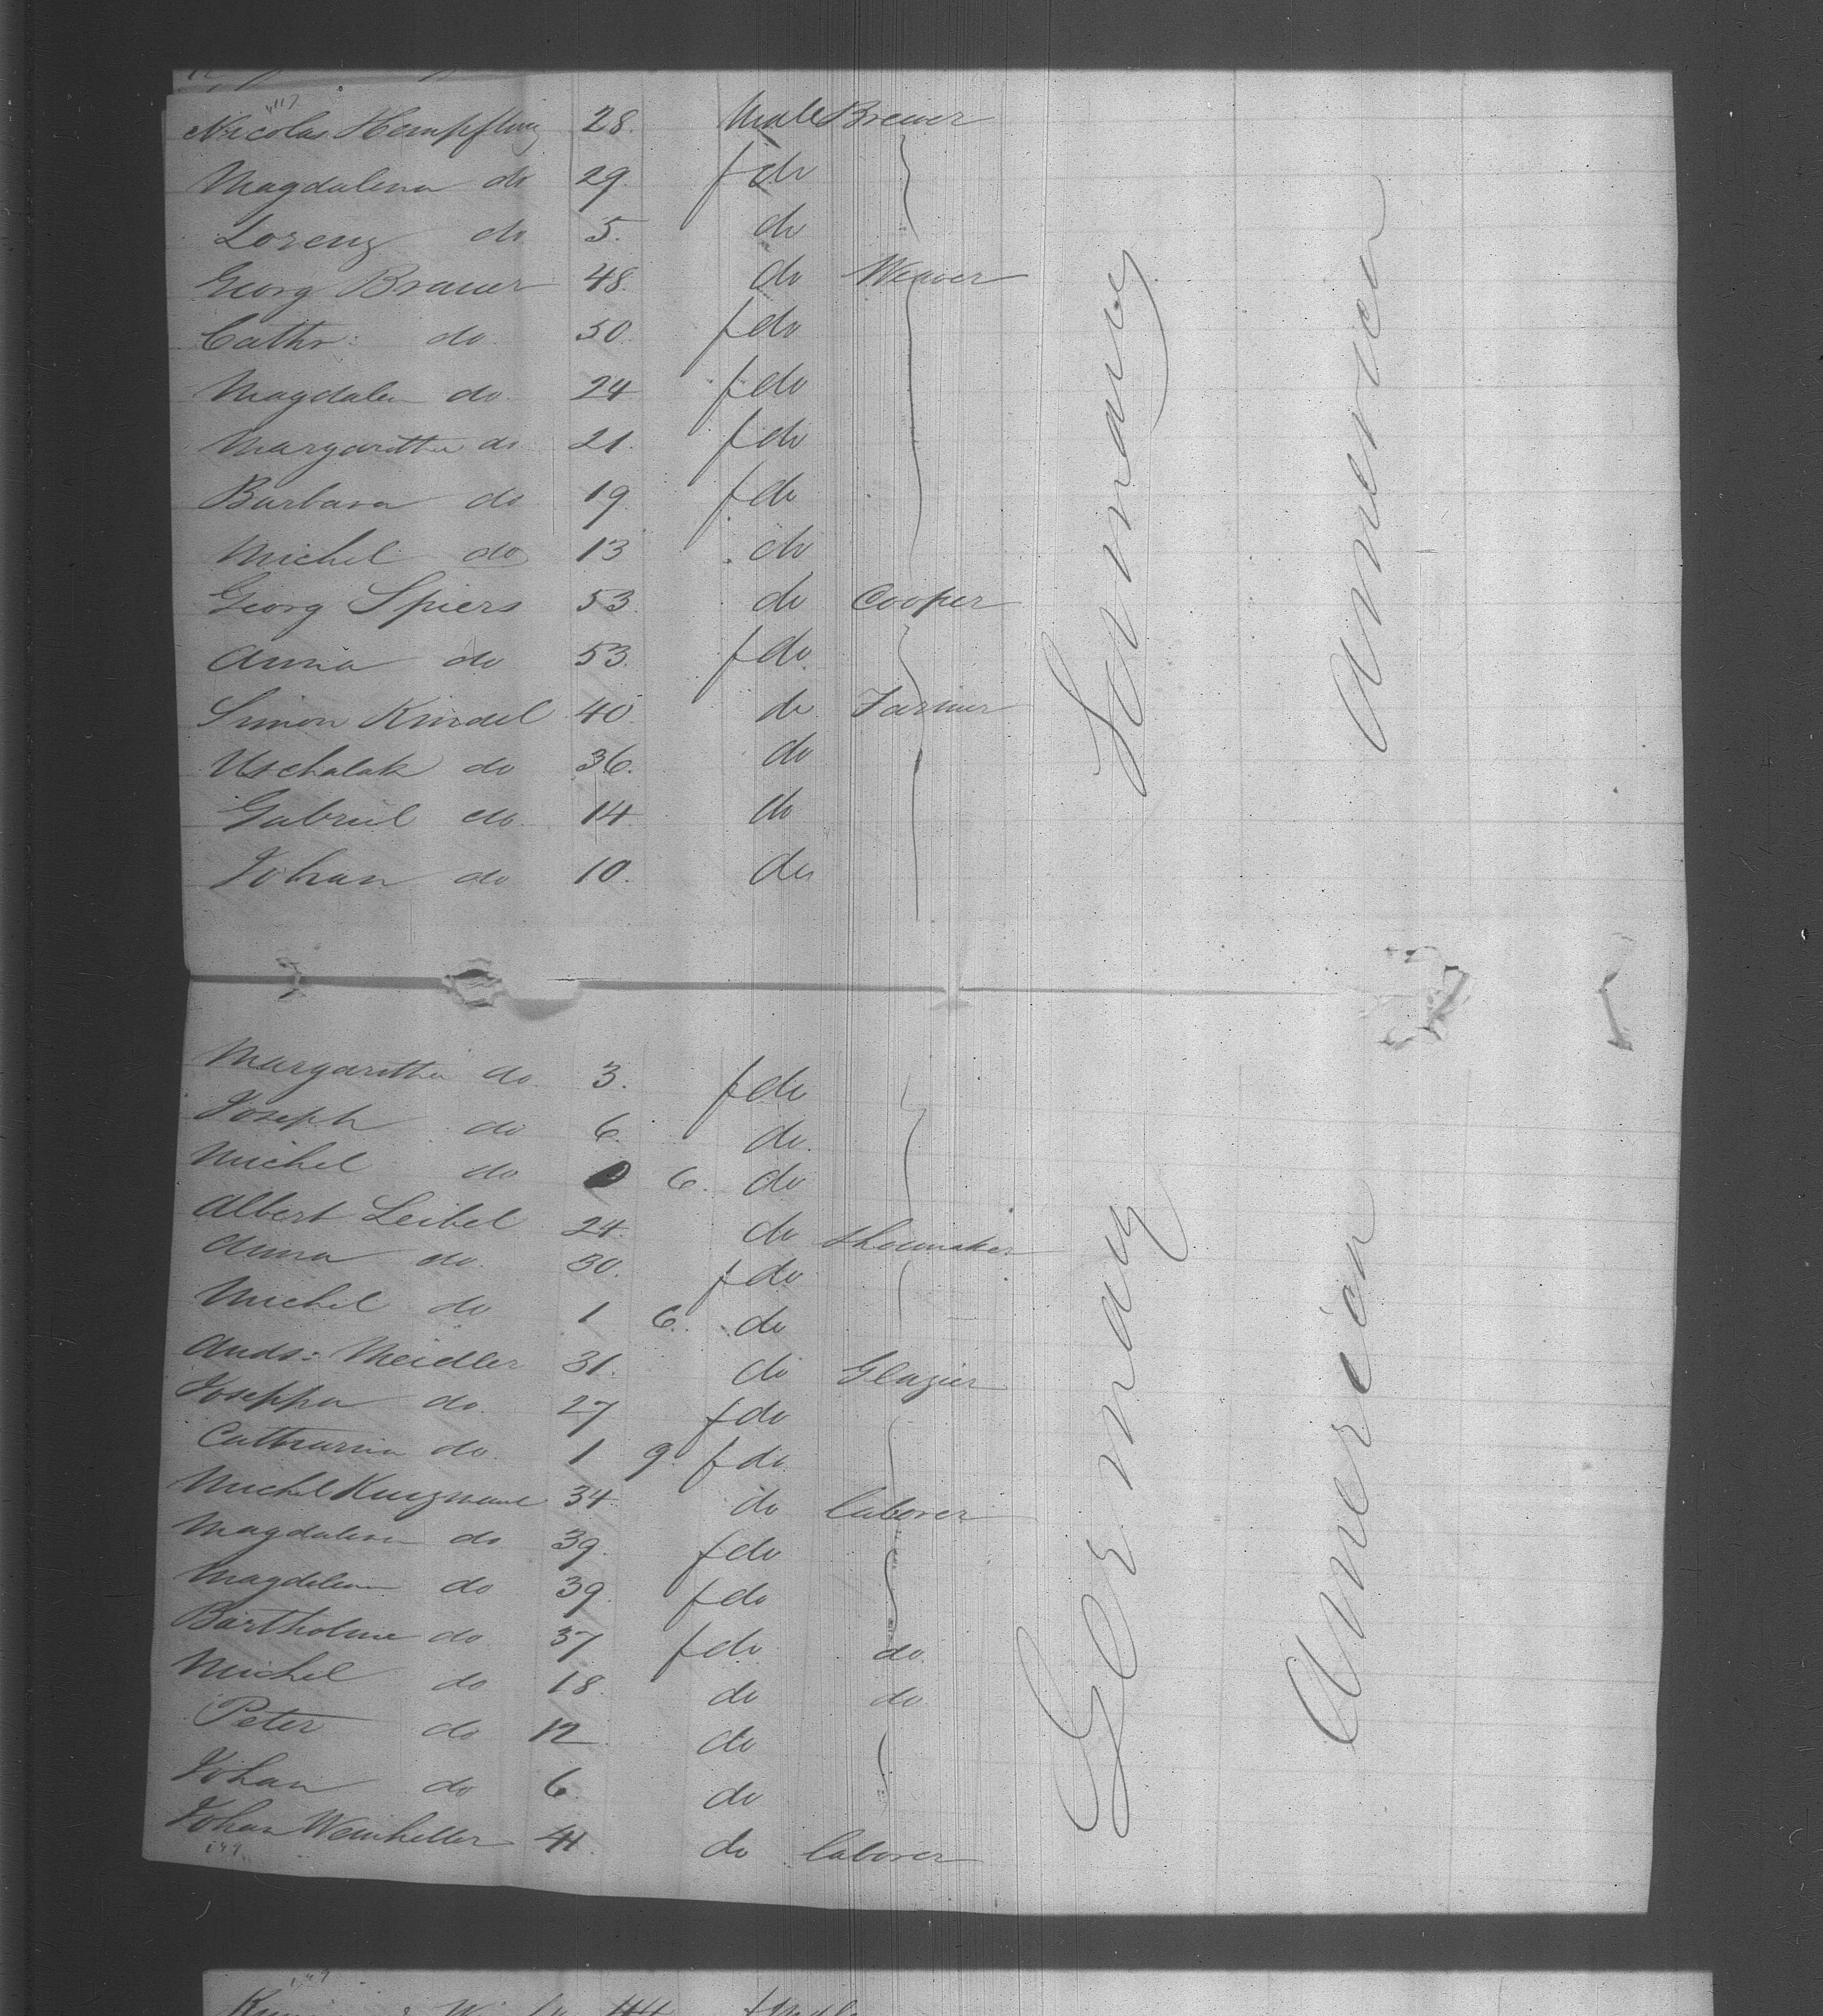 117
Nicolas Hempfling 28. Male Brewer
Magdalena do 29. fdo
Lorenz do 5. do
Georg Brauer 48. do Weaver
Cathr: do 50. fdo
Magdalen do. 24 fdo
Margaretha do. 21. fdo
Barbara do 19. fdo
Michel do 13 do
Georg Spiers 53. do Cooper
Anna do 53. fdo
Simon Kindel 40. do Farmer
do 36. do
Gabriel do. 14 do
Johan do 10. do
Germany
America
Margaretha do. 3. fdo
Joseph do 6. do.
Michel do 6. do
Albert Leibel 24. do Shoemaker
Anna do. 30. fdo
Michel do 1 6. do
Ands: Meidler 31. do Glazier
Joseppa do. 27 fdo
Catharina do. 1 9. fdo
Michel 34. do laborer
Magdalena do 39. fdo
Magdalena do 39. fdo
Bartholme do. 37 fdo do.
Michel do 18. do do
Peter do 12. do
Johan do 6. do
Johan Weinheller 41. do laborer
149.
Germany
America
149
44